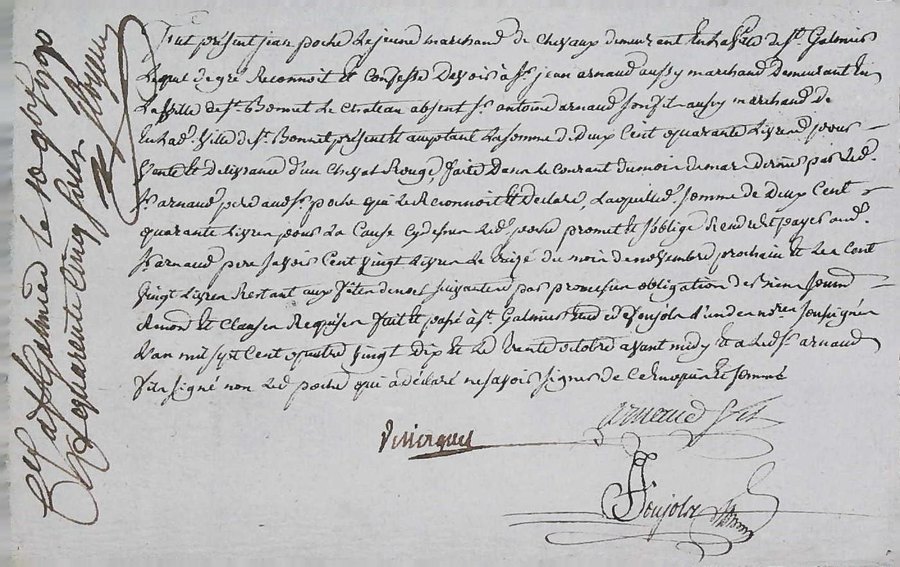 Fut présent jean poche Le jeune marchand de chevaux demeurant En la ville de St. Galmier
Lequel de gré Reconnoit Et Confesse Devoir à Sr. jean arnaud aussy marchand Demeurant En
La ville de St. Bonnet Le Chateau absent Sr. antoine arnaud son fils aussy marchand de
lad. Ville de St. Bonnet présent Et acceptant La somme de Deux Cent quarante Livres pour
Vente Et délivrance d'un Cheval Rouge, faite Dans le Courant du mois de mars Dernier par Led.
Sr. arnaud pere aud. poche qui Le Reconnoit Et Déclare, Laquelle d. somme de Deux Cent
quarante Livres pour La Cause Cy dessus Led. poche promet Et s'oblige Rendre Et payer aud.
Sr. arnaud pere savoir Cent Vingt Livres Le du mois de novembre prochain Et Les Cent
Vingt Livres Restant aux fêtes de noel suivantes par obligation de ses biens Soumis
Renon. Et Clauses Requises fait Et passé à St. Galmier Etude de Poujols l'un des nores. soussignés
L'an mil sept Cent quatre Vingt Dix Et Le trente octobre avant midy Et a Led. Sr. arnaud
fils signé non Led. poche qui a déclaré ne savoir signer de Ce Enquis Et sommé
arnaud fils
Poujols
à St. Galmier le 10 9bre 1790
quarante Cinq sous